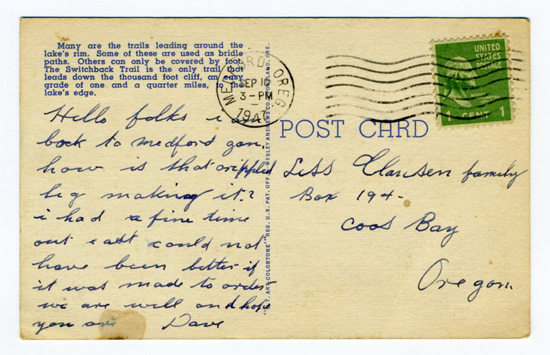 Many are the trails leading around the
lake's rim. Some of these are used as bridle
paths. Others can only be covered by foot.
The Switchback Trail is the only trail that
leads down the thousand foot cliff, an easy
grade of one and a quarter miles, to the
lake's edge.
MEDFORD OREG.
SEP 10
3-PM
194
UNITED
STATES
POSTAGE
CENT 1
POST CARD
Hello folks i
back to medford gon.
how is that crippled
leg making it?
i had a fine time
out could not
have been better if
it was made to order
we are well and hope
you are Dave
Less Clausen family
Box 194-
Coos Bay
Oregon.